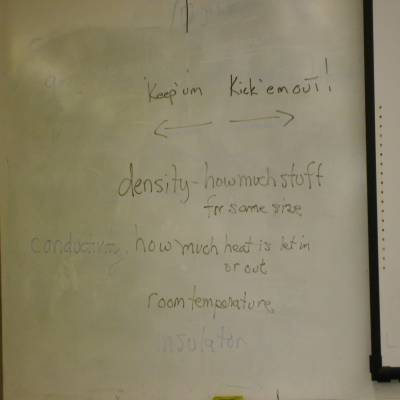 'Keep'um Kick'em out!
density - how much stuff
for same size
conductivity. how much heat is let in
or out
room temperature
insulator